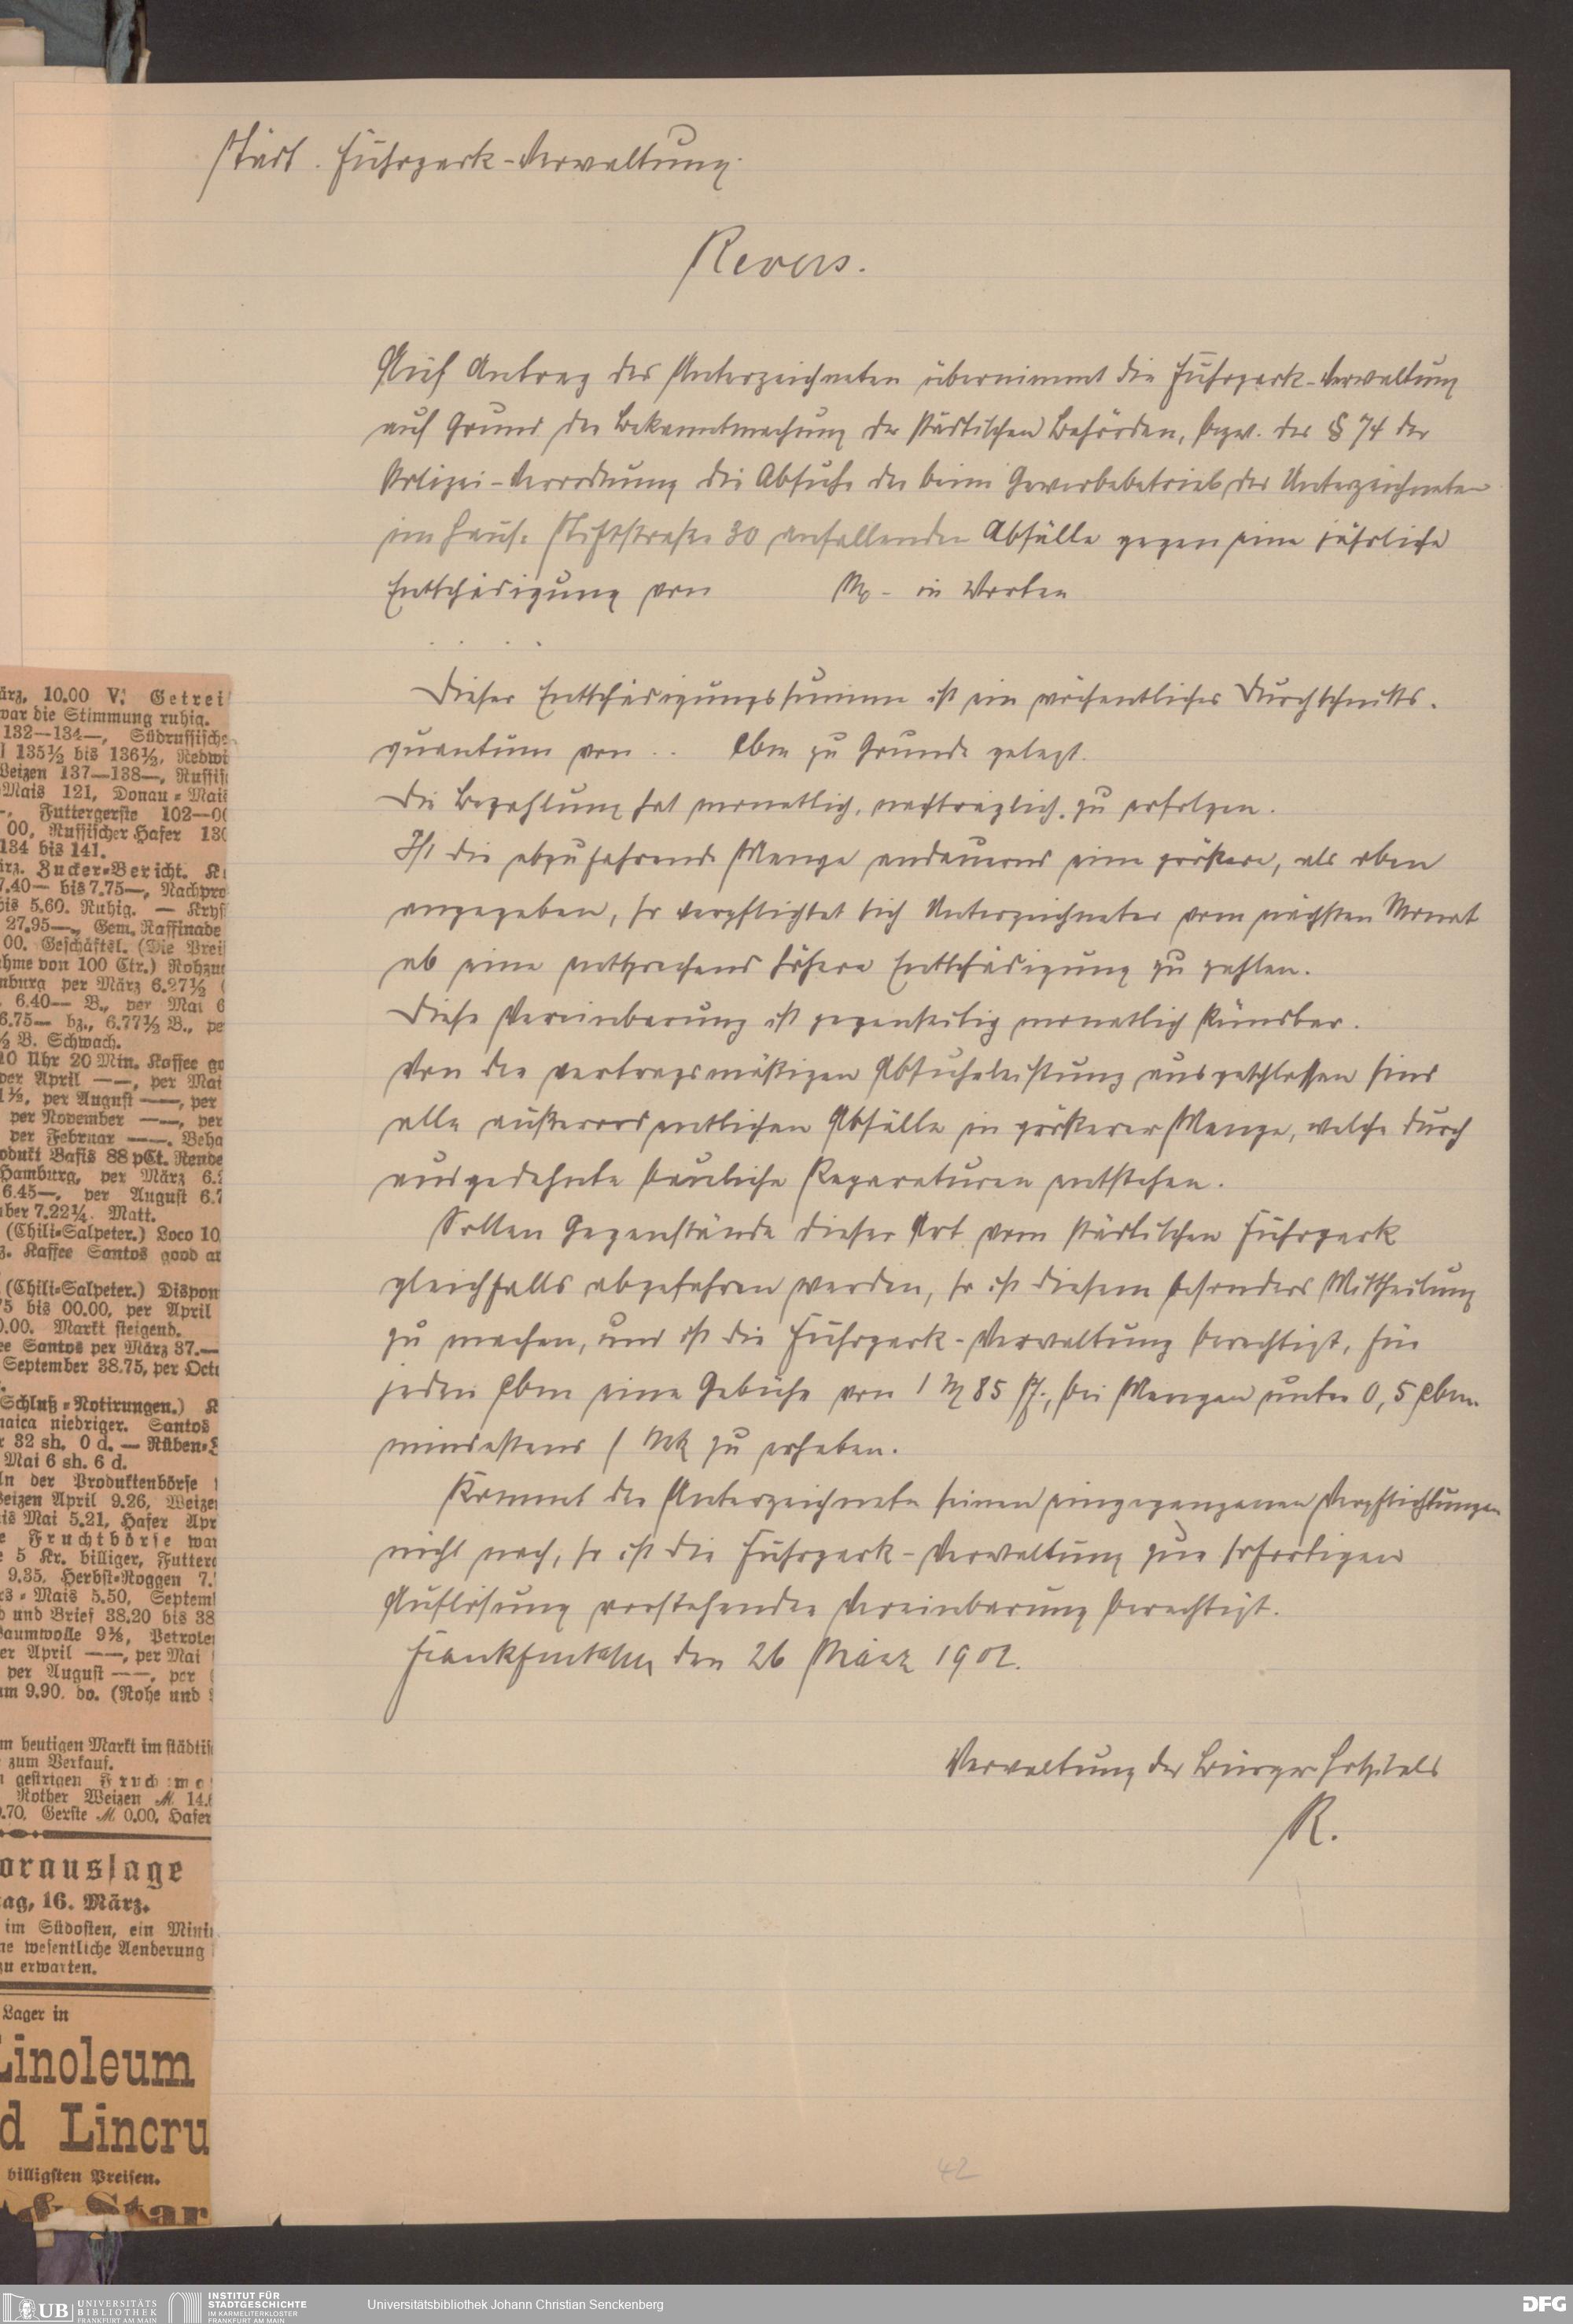 Städt. Fuhrpark-Verwaltung.
Revers.
Auf Antrag des Unterzeichneten übernimmt die Fuhrpark-Verwaltung
auf Grund der Bekanntmachung der städtischen Behörden, bezw. des § 74 der
Polizei-Verordnung die Abfuhr der beim Gewerbebetrieb des Unterzeichneten
im Hause Stiftstraße 30 anfallenden Abfälle gegen eine jährliche
Entschädigung von M - in Worten
. . .
Dieser Entschädigungssumme ist ein wöchentliches Durchschnitts-
quantum von .. Cbm zu Grunde gelegt.
Die Bezahlung hat monatlich, nachträglich, zu erfolgen.
Ist die abzufahrende Menge andauernd eine größere, als oben
angegeben, so verpflichtet sich Unterzeichneter vom nächsten Monat
ab eine entsprechend höhere Entschädigung zu zahlen.
Diese Vereinbarung ist gegenseitig monatlich kündbar.
Von der vertragsmäßigen Abfuhrleistung ausgeschlossen sind
alle außerordentlichen Abfälle in größerer Menge, welche durch
ausgedehnte bauliche Reparaturen entstehen.
Sollen Gegenstände dieser Art vom städtischen Fuhrpark
gleichfalls abgefahren werden, so ist diesem besonders Mittheilung
zu machen, und ist die Fuhrpark-Verwaltung berechtigt, für
jeden Cbm eine Gebühr von 1 M 85 Pf., bei Mengen unter 0,5 Cbm.
mindestens 1 Mk zu erheben.
Kommt der Unterzeichnete seinen eingegangenen Verpflichtungen
nicht nach, so ist die Fuhrpark-Verwaltung zur sofortigen
Auflösung vorstehender Vereinbarung berechtigt.
Frankfurt a/M den 26 März 1902.
Verwaltung des Bürgerhospitals
R.
42
ärz. 10.00 V. Getrei
war die Stimmung ruhig.
132—134—, Südrussische
135½ bis 136½, Redwi
Weizen 137—138—, Russis
Mais 121, Donau-Mais
—, Futtergerste 102—00
00, Russischer Hafer 130
134 bis 141.
ärz. Zucker-Bericht. K
7.40— bis 7.75—, Nachpro
bis 5.60. Ruhig. — Kryst
27.95—, Gem. Raffinade
00. Geschäftsl. (Die Prei
hme von 100 Ctr.) Rohzu
mburg per März 6.27½
6.40— B., per Mai 6
6.75— bz., 6.77½ B., pe
½ B. Schwach.
10 Uhr 20 Min. Kaffee go
per April ——, per Mai
1½, per August ——, per
per November ——, per
per Februar ——. Beha
odukt Basis 88 pCt. Rende
Hamburg, per März 6.2
6.45—, per August 6.7
ber 7.22¼. Matt.
(Chili-Salpeter.) Loco 10
z. Kaffee Santos good av
(Chili-Salpeter.) Dispon
75 bis 00.00, per April
0.00. Markt steigend.
ee Santos per März 37.—
September 38.75, per Octo
Schluß-Notirungen.) K
maica niedriger. Santos
r 32 sh. 0 d. — Rüben-
Mai 6 sh. 6 d.
In der Produktenbörse
Weizen April 9.26, Weizen
is Mai 5.21, Hafer Apr
e Fruchtbörse war
e 5 Kr. billiger, Futter
9.35, Herbst-Roggen 7.
rs-Mais 5.50, Septem
d und Brief 38.20 bis 38
Baumwolle 9⅜, Petrole
er April ——, per Mai
per August ——, per
am 9.90. do. (Rohe und
m heutigen Markt im städtis
zum Verkauf.
gestrigen Fruchtma
Rother Weizen M 14.
0.70, Gerste M 0.00, Hafer
oraussage
ag, 16. März.
im Südosten, ein Mini
ne wesentliche Aenderung
zu erwarten.
Lager in
Linoleum
d Lincru
billigsten Preisen.
& Star
UB UNIVERSITÄTS BIBLIOTHEK FRANKFURT AM MAIN
INSTITUT FÜR STADTGESCHICHTE IM KARMELITERKLOSTER FRANKFURT AM MAIN
Universitätsbibliothek Johann Christian Senckenberg
DFG